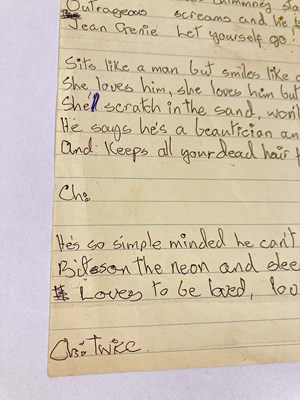 Outrageous screams and he
Jean Genie Let yourself go!
Sits like a man but smiles like
She loves him, she loves him but
She'll scratch in the sand, won't
He says he's a beautician an
and Keeps all your dead hair f
Ch:
He's so simple minded he can't
Bites on the neon and slee
Loves to be loved, lou
Ch: Twice